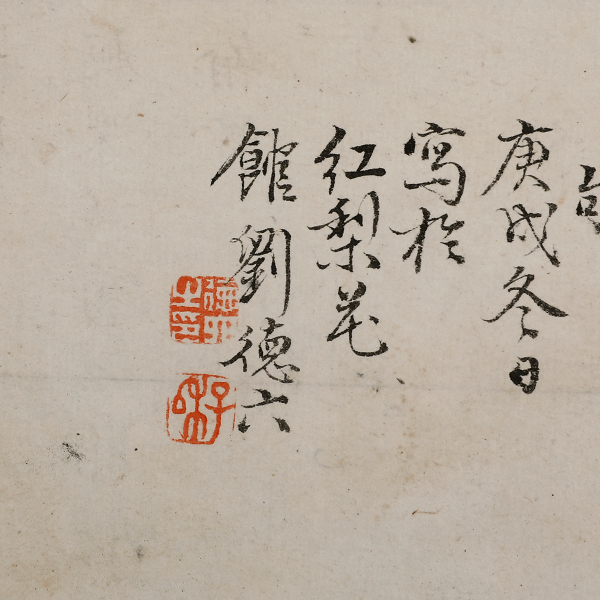 庚戌冬日
寫於
紅梨花
館劉德六